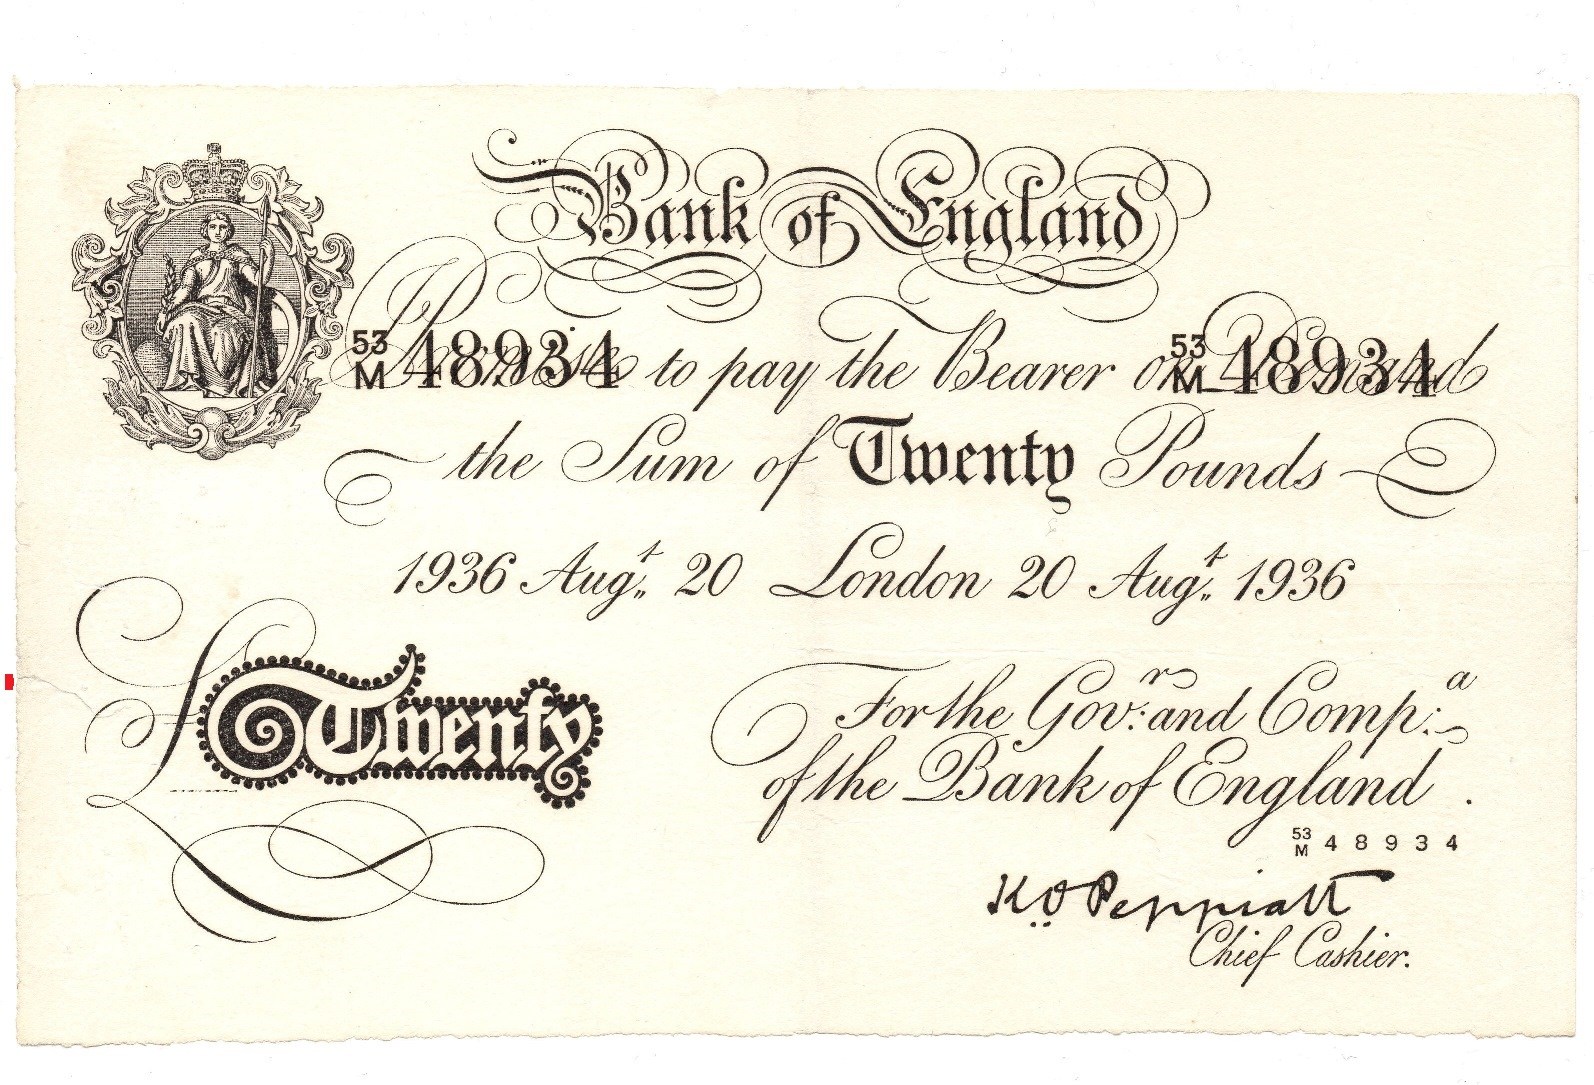 Bank of England
53/M 48934 53/M 48934
I Promise to pay the Bearer on Demand
the Sum of Twenty Pounds
1936 Augt. 20 London 20 Augt. 1936
£ Twenty
For the Govr: and Compa:
of the Bank of England.
53/M 48934
K O Peppiatt
Chief Cashier.